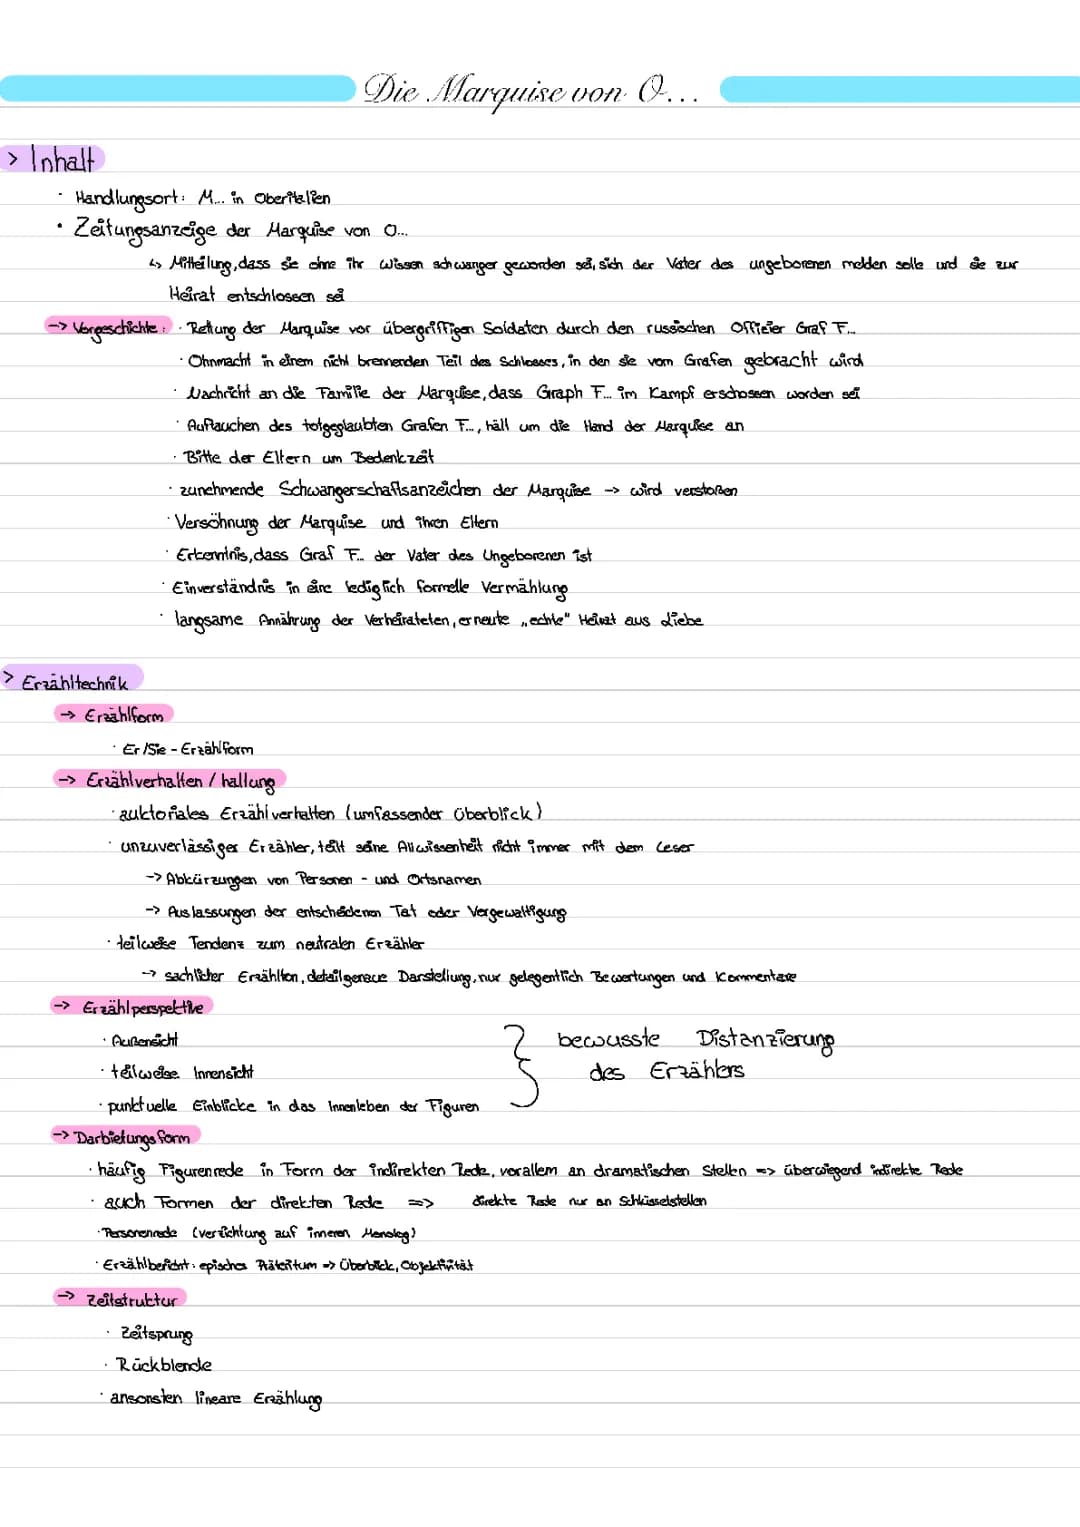 Die Marquise von O...
> Inhalt
· Handlungsort: M... in Oberitalien
· Zeitungsanzeige der Marquise von O...
↳ Mitteilung, dass sie ohne ihr Wissen schwanger geworden sei, sich der Vater des ungeborenen melden solle und sie zur
Heirat entschlossen sei
-> Vorgeschichte: · Rettung der Marquise vor übergriffigen Soldaten durch den russischen Offizier Graf F...
· Ohnmacht in einem nicht brennenden Teil des Schlosses, in den sie vom Grafen gebracht wird
· Nachricht an die Familie der Marquise, dass Graph F... im Kampf erschossen worden sei
· Auftauchen des totgeglaubten Grafen F..., hält um die Hand der Marquise an
· Bitte der Eltern um Bedenkzeit
· zunehmende Schwangerschaftsanzeichen der Marquise -> wird verstoßen
· Versöhnung der Marquise und ihren Eltern
· Erkenntnis, dass Graf F... der Vater des Ungeborenen ist
· Einverständnis in eine lediglich formelle Vermählung
· langsame Annährung der Verheirateten, erneute „echte" Heirat aus Liebe
> Erzähltechnik
-> Erzählform
· Er/Sie - Erzählform
-> Erzählverhalten / haltung
· auktoriales Erzählverhalten (umfassender Überblick)
· unzuverlässiger Erzähler, teilt seine Allwissenheit nicht immer mit dem Leser
-> Abkürzungen von Personen - und Ortsnamen
-> Auslassungen der entscheidenen Tat oder Vergewaltigung
· teilweise Tendenz zum neutralen Erzähler
-> sachlicher Erzählton, detailgenaue Darstellung, nur gelegentlich Bewertungen und Kommentare
-> Erzählperspektive
· Außensicht
· teilweise Innensicht
· punktuelle Einblicke in das Innenleben der Figuren
} bewusste Distanzierung
des Erzählers
-> Darbietungsform
· häufig Figurenrede in Form der indirekten Rede, vorallem an dramatischen Stellen => überwiegend indirekte Rede
· auch Formen der direkten Rede => direkte Rede nur an Schlüsselstellen
· Personenrede (verzichtung auf inneren Monolog)
· Erzählbericht: episches Präteritum => Überblick, Objektivität
-> Zeitstruktur
· Zeitsprung
· Rückblende
· ansonsten lineare Erzählung